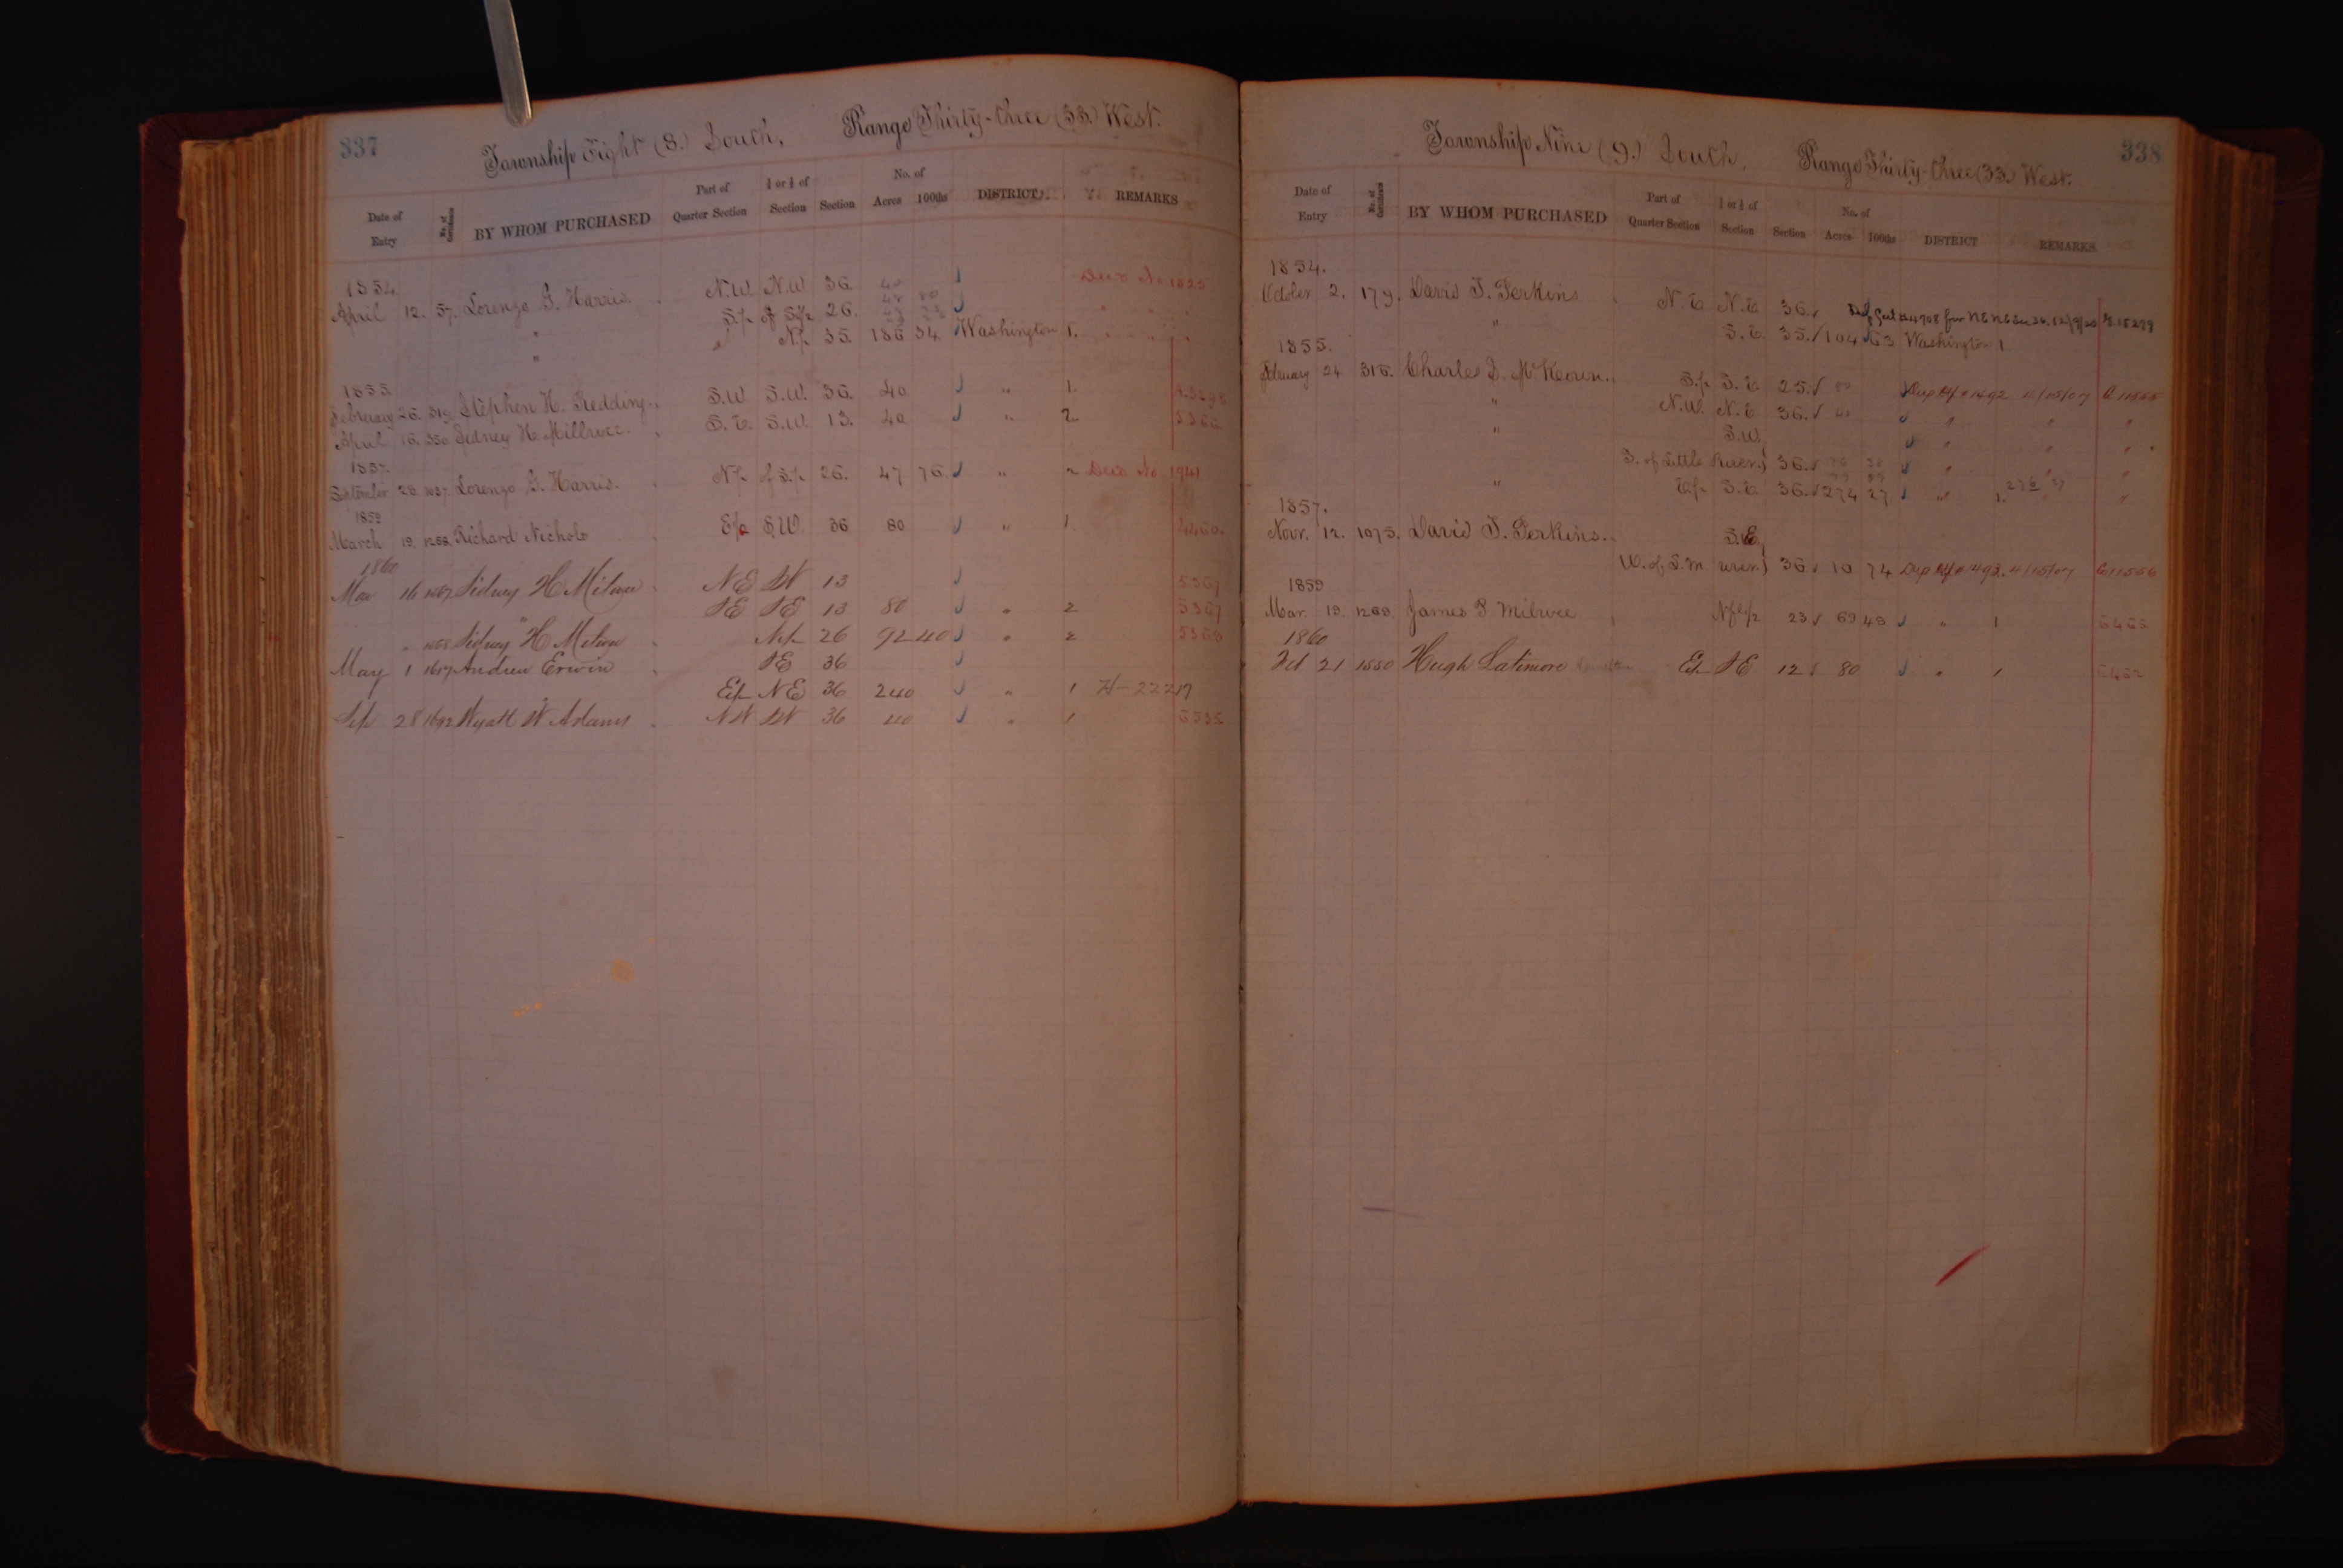 337
Township Eight (8.) South, Range Thirty-three (33.) West.
Date of Entry No. of Certificate BY WHOM PURCHASED Part of Quarter Section ¼ or ½ of Section Section No. of Acres 100ths DISTRICT REMARKS
1854
April 12. 57. Lorenzo G. Harris. N.W. N.W. 36. 40 Deed No 1825
" S.½ of S.½ 26.
" N½ 35. 186 34 Washington 1.
1855.
February 26. 319. Stephen H. Redding. S.W. S.W. 36. 40 " 1.
April 16. 350. Sidney H. Millwee. S.E. S.W. 13. 40 " 2
1857.
September 28. 1037. Lorenzo G. Harris. N½ of S.½ 26. 47 76. " " Deed No. 1941
1859
March 19. 1288. Richard Nichols E½ S.W. 36 80 " 1. 4460.
1860
Mar 16 1567 Sidney H Milwee NE SW 13 5367
SE SE 13 80 " 2 5367
" " 1568 Sidney H Milwee N½ 26 92 40 " 2 5368
May 1 1617 Andrew Erwin SE 36
E½ NE 36 240 " 1 H-22217
Sep 28 1692 Wyatt W Adams NW SW 36 40 " 1
338
Township Nine (9.) South. Range Thirty-three (33.) West.
Date of Entry No. of Certificate BY WHOM PURCHASED Part of Quarter Section ¼ or ½ of Section Section No. of Acres 100ths DISTRICT REMARKS
1854.
October 2. 179. David T. Perkins N.E N.E 36.
" S.E. 35. 104 63 Washington 1
1855.
February 24 316. Charles D. McKeown. S.½ S.E 25. 80 Dup 1492 4/15/07
" N.W. N.E 36. 40 " " "
" S.W.
S. of Little River.) 36. " " "
" E½ S.E. 36. 274 27. " 1. "
1857.
Novr. 12. 1075. David T. Perkins. S.E.
W. of S.m. river.) 36 10 74 Dup 1493. 4/15/07
1859
Mar. 19. 1289 James S Milwee 23 69 43 " 1
1860
Feb 21 1550 Hugh Latimore E½ SE 12 80 " 1